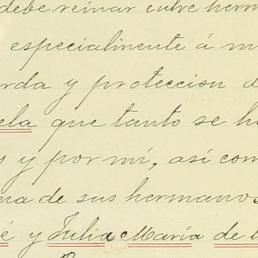 debe reinar entre herm
especialmente á m
rda y proteccion d
ela que tanto se h
s y por mí, así com
na de sus hermanos
é y Julia María de